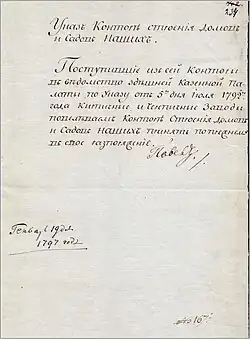 234
Указъ Конторѣ строенія домовъ
и Садовъ Нашихъ.
Поступившіе изъ сей Конторы
въ вѣдомство здѣшней Казенной Па-
латы по Указу отъ 5го дня Іюля 179
года Кирпичные и Заводы
повелѣваемъ Конторѣ Строенія домовъ
и Садовъ Нашихъ принять попрежнему
въ свое
Павелъ
Генваря 19 дня
1797 года
167